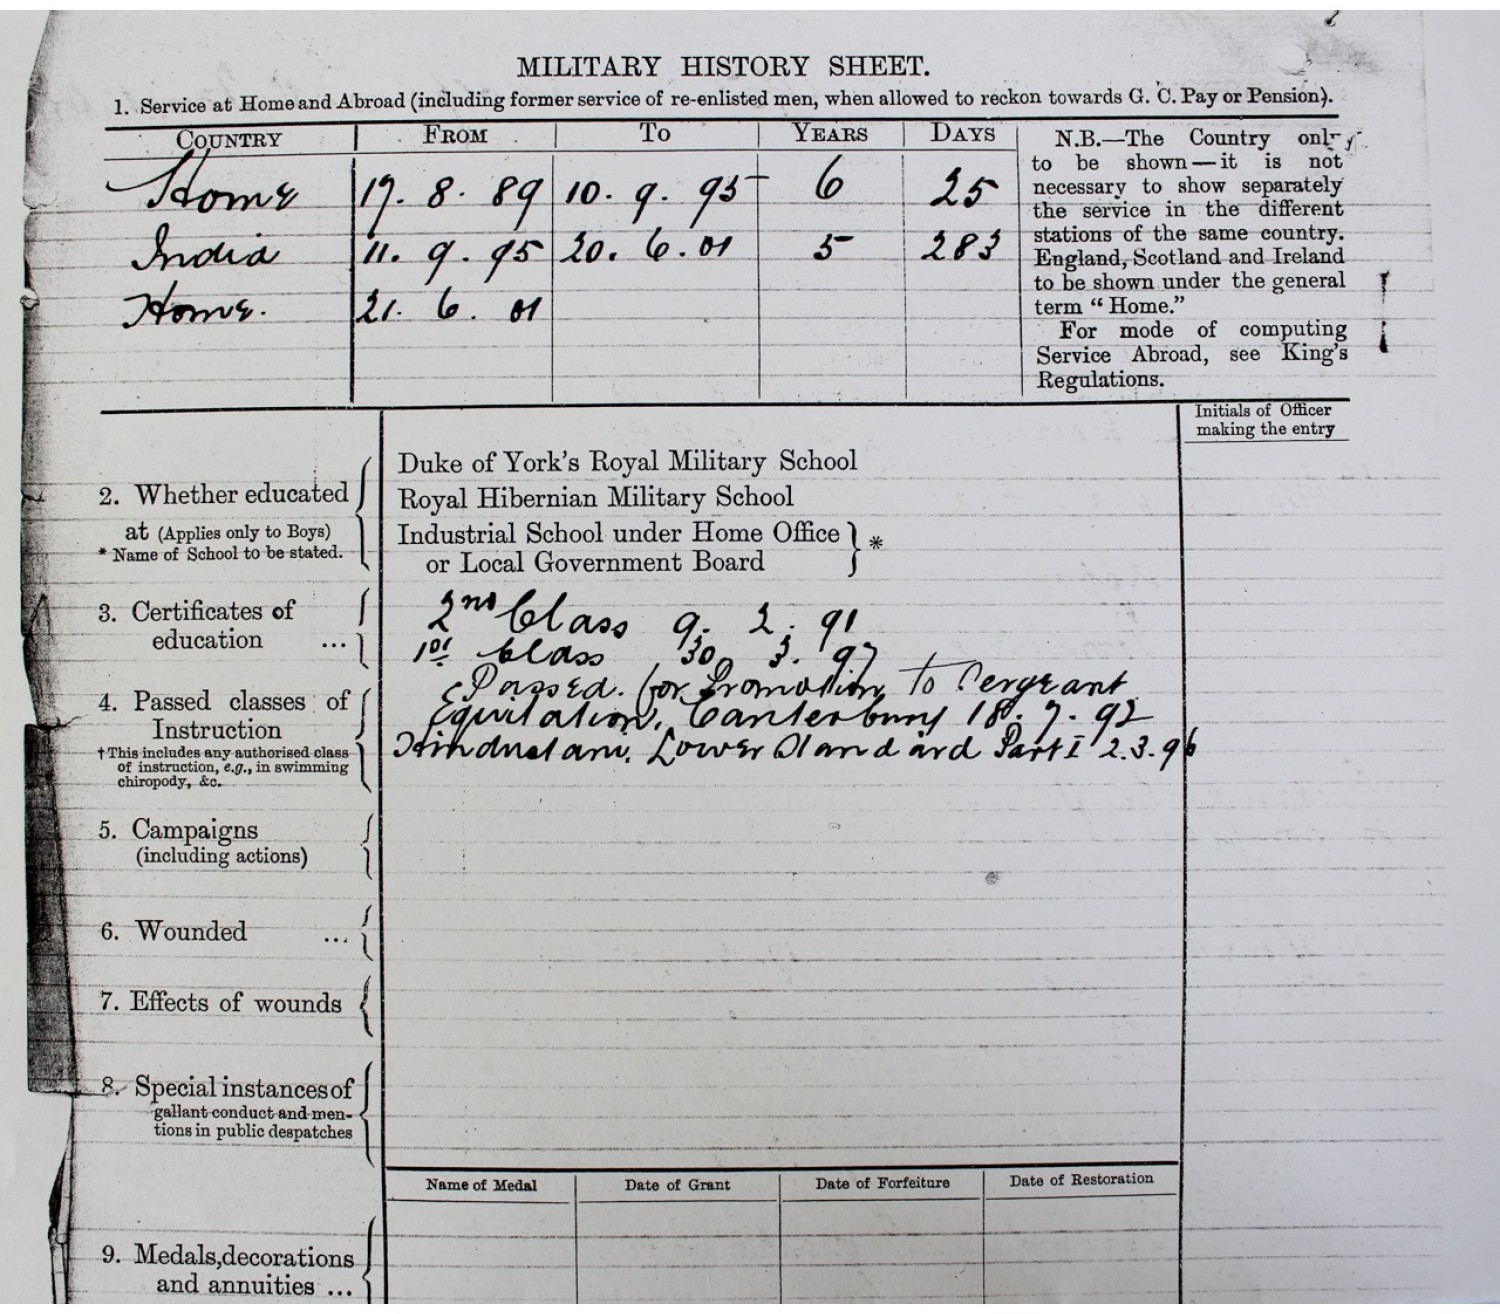 MILITARY HISTORY SHEET.
1. Service at Home and Abroad (including former service of re-enlisted men, when allowed to reckon towards G. C. Pay or Pension).
COUNTRY FROM TO YEARS DAYS
Home 17. 8. 89 10. 9. 95 6 25
India 11. 9. 95 20. 6. 01 5 283
Home. 21. 6. 01
N.B.—The Country only
to be shown—it is not
necessary to show separately
the service in the different
stations of the same country.
England, Scotland and Ireland
to be shown under the general
term "Home."
For mode of computing
Service Abroad, see King's
Regulations.
Initials of Officer
making the entry
2. Whether educated
at (Applies only to Boys)
* Name of School to be stated.
Duke of York's Royal Military School
Royal Hibernian Military School
Industrial School under Home Office
or Local Government Board } *
3. Certificates of
education ...
2nd Class 9. 2. 91
1st Class 30. 3. 97
4. Passed classes of
Instruction
† This includes any authorised class
of instruction, e.g., in swimming
chiropody, &c.
Passed. for Promotion to Sergeant
Equitation, Canterbury 18. 7. 92
Hindustani. Lower Standard Part I 2.3.96
5. Campaigns
(including actions)
6. Wounded ...
7. Effects of wounds
8. Special instances of
gallant conduct and men-
tions in public despatches
Name of Medal Date of Grant Date of Forfeiture Date of Restoration
9. Medals, decorations
and annuities ...